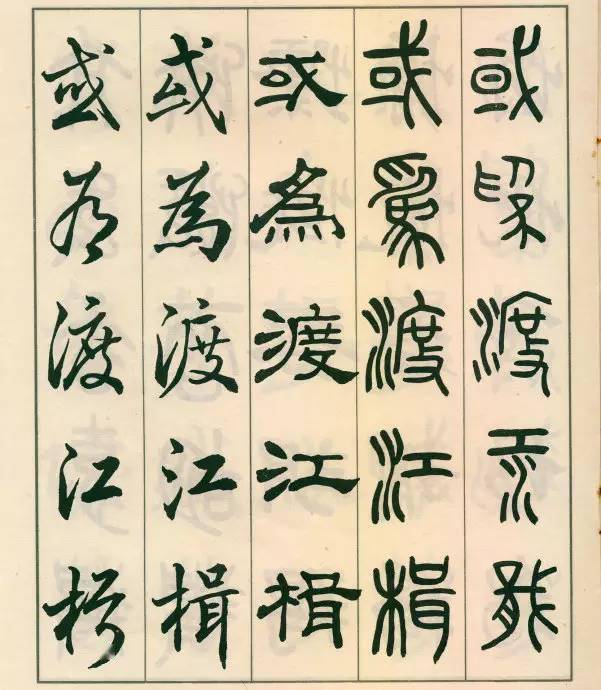 或為渡江楫
或為渡江楫
或為渡江楫
或為渡江楫
或為渡江楫